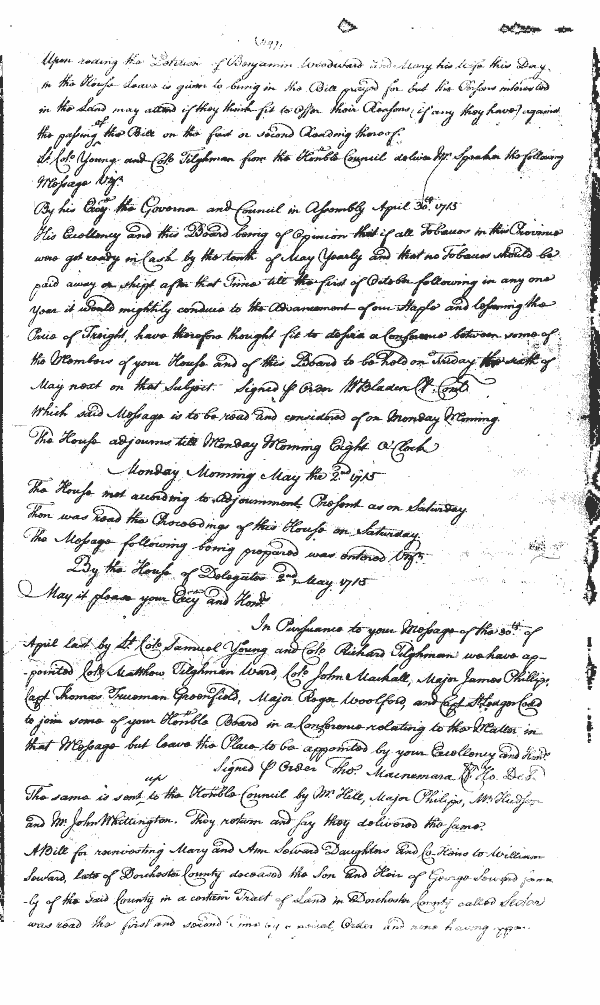 Upon reding the Petition of Benjamin Woodward and Mary his Wife this Day
in the House Leave is given to bring in the Bill prayed for but the Persons interested
in the Land may attend if they think fit to offer their Reasons (if any they have) against
the passing of the Bill on the first or second Reading thereof.
Lt. Colo Young and Colo Tilghman from the Honble Council deliver Mr. Speaker the following
Message Vizt.
By his Excy the Governor and Council in Assembly April 30th 1715
His Excellency and this Board being of Opinion that if all Tobaccos in this Province
were got ready in Cash by the tenth of May Yearly and that no Tobaccos should be
paid away or shipt after that Time till the first of October following in any one
Year it would mightily conduce to the Advancement of our Staple and lessening the
Price of Freight, have therefore thought fit to desire a Conference between some of
the Members of your House and of this Board to be held on Friday the sixth of
May next on that Subject. Signed p Order W Bladen Cl. Conl.
Which said Message is to be read and considered of on Monday Morning.
The House adjourns till Monday Morning Eight O'Clock
Monday Morning May the 2nd 1715
The House met according to Adjournment. Present as on Saturday
Then was read the Proceedings of this House on Saturday.
The Message following being prepared was entered Vizt.
By the House of Delegates 2nd May 1715
May it please your Excy and Honrs
In Pursuance to your Message of the 30th of
April last by Lt. Colo Samuel Young and Colo Richard Tilghman we have ap-
-pointed Colo Matthew Tilghman Ward, Colo John Mackall, Major James Philips,
Capt Thomas Trueman Greenfield, Major Roger Woolford and Capt St Leger Codd
to join some of your Honble Board in a Conference relating to the Matter in
that Message but leave the Place to be appointed by your Excellency and Honrs
Signed p Order Tho. Macnemara Cl Ho. Del
up
The same is sent to the Honble Council by Mr Hill, Major Philips, Mr Hudson
and Mr John Whittington. They return and say they delivered the same.
A Bill for reinvesting Mary and Ann Seward Daughters and Co Heirs to William
Seward, late of Dorchester County deceased the Son and Heir of George Seward form
-ly of the said County in a certain Tract of Land in Dorchester County called
was read the first and second Time by Order and none having